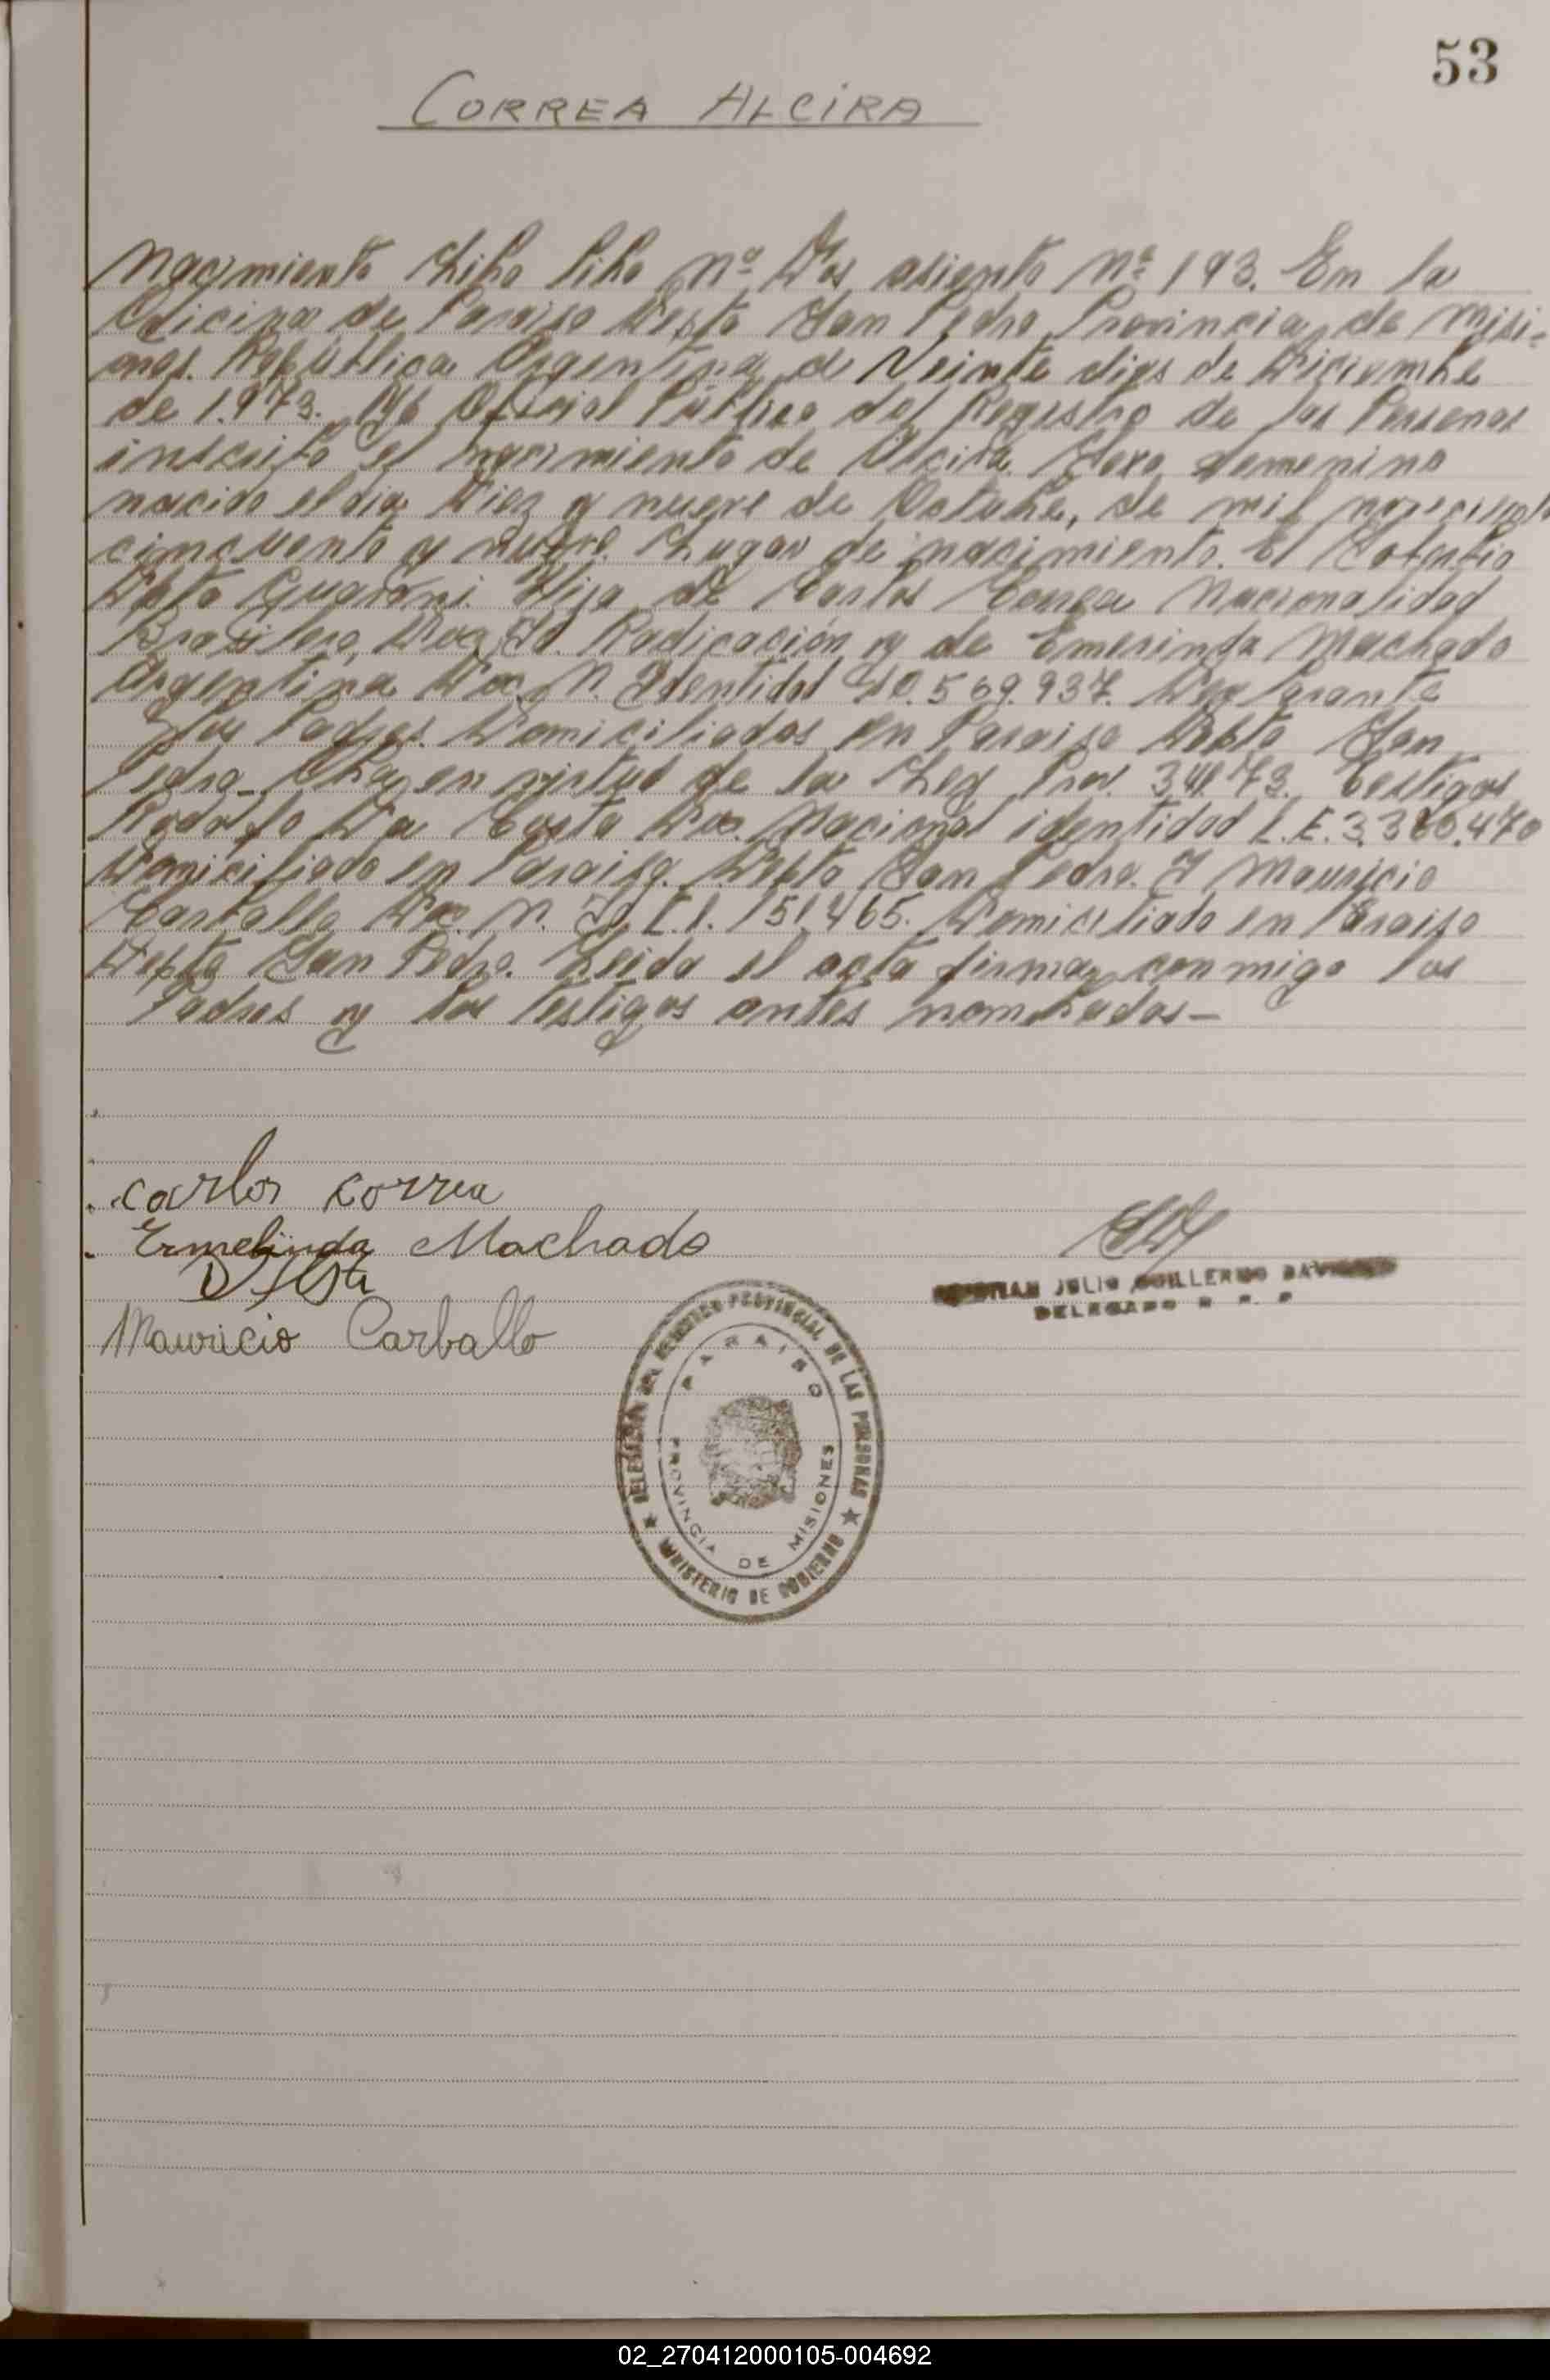 53
CORREA ALCIRA
Nacimiento Libro Nº Dos asiento Nº 193. En la
Oficina de Paraiso Depto San Pedro Provincia de Misi-
ones. República Argentina a Veinte dias de Diciembre
de 1.973. Yo Oficial Público del Registro de las Personas
inscribo el nacimiento de Alcira Sexo femenino
nacido el dia Diez y nueve de Octubre, de mil novecientos
cincuenta y nueve. Lugar de nacimiento. El
Depto Guaraní. Hija de Carlos Correa Nacionalidad
Brasilero, Doc. Radicación y de Emerinda Machado
Argentina Doc. N. Identidad 569.937.
Los Padres. Domiciliados en Paraiso Depto San
Pedro en virtud de la Ley Prov. Testigos
Rodolfo Da Costa Doc. Nacional identidad L.E. 3.380.470
Domiciliado en Paraiso. Depto San Pedro. Y Mauricio
Carballo Doc. N. 151.465. Domiciliado en Paraiso
Depto San Pedro. Leida el acta firman conmigo los
Padres y los testigos antes nombrados-
Carlos Correa
Ermelinda Machado
Mauricio Carballo
JULIO GUILLERMO
DELEGADO
DELEGACION DEL REGISTRO PROVINCIAL DE LAS PERSONAS
PARAISO
PROVINCIA DE MISIONES
MINISTERIO DE GOBIERNO
02_270412000105-004692